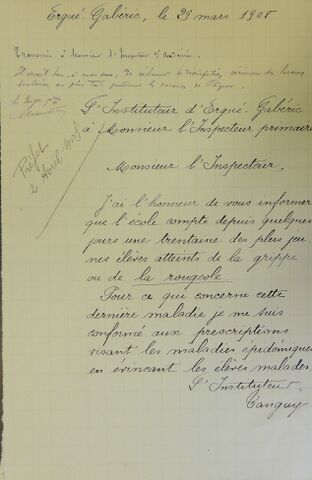 Ergué-Gabéric, le 29 mars 1908
Transmis à Monsieur l'Inspecteur d'Académie.
Il serait bon, à mon avis, de
scolaires au plus tôt pendant les vacances de Pâques.
Préfet
2 Avril 1908
L'Instituteur d'Ergué-Gabéric
à Monsieur l'Inspecteur primaire
Monsieur l'Inspecteur.
J'ai l'honneur de vous informer
que l'école compte depuis quelques
jours une trentaine des plus jeu-
nes élèves atteints de la grippe
ou de la rougeole.
Pour ce qui concerne cette
dernière maladie, je me suis
conformé aux prescriptions
visant les maladies épidémiques
en évinçant les élèves malades
L'Instituteur
Tanguy